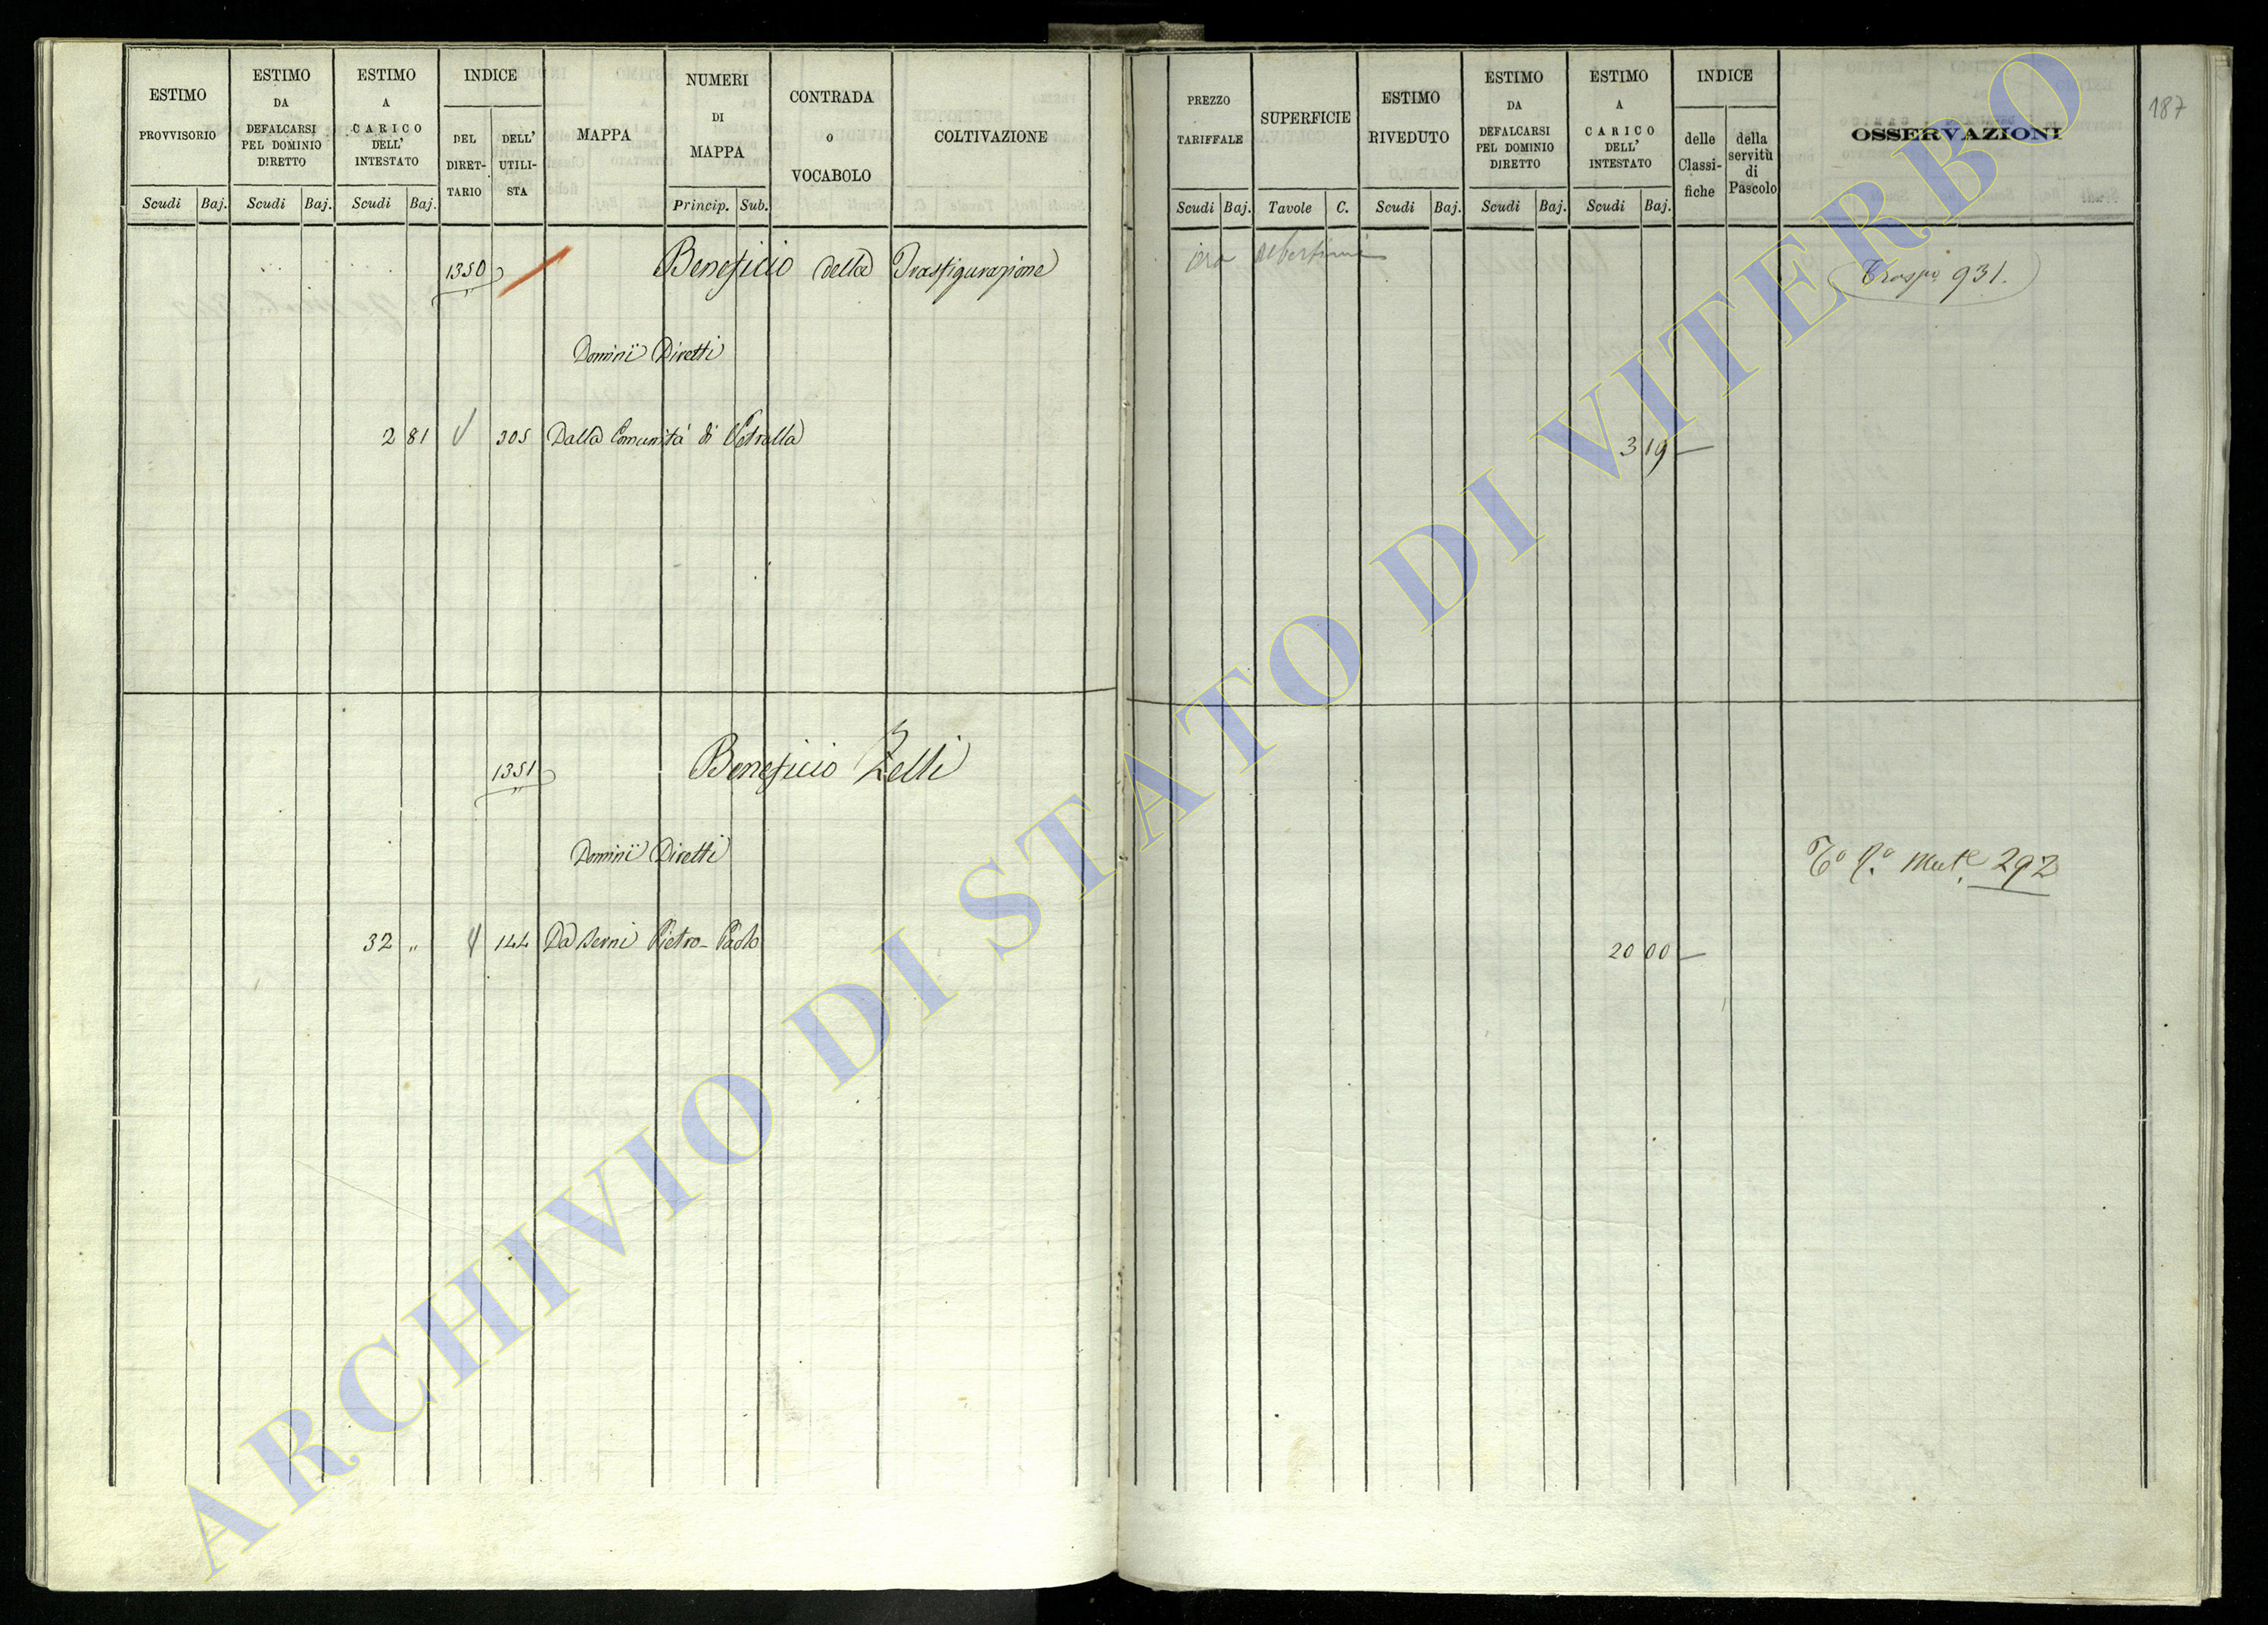 ESTIMO PROVVISORIO
Scudi Baj.
ESTIMO DA DEFALCARSI PEL DOMINIO DIRETTO
Scudi Baj.
ESTIMO A CARICO DELL' INTESTATO
Scudi Baj.
INDICE
DEL DIRET-TARIO
DELL' UTILI-STA
MAPPA
NUMERI DI MAPPA
Princip. Sub.
CONTRADA o VOCABOLO
COLTIVAZIONE
PREZZO TARIFFALE
Scudi Baj.
SUPERFICIE
Tavole C.
ESTIMO RIVEDUTO
Scudi Baj.
ESTIMO DA DEFALCARSI PEL DOMINIO DIRETTO
Scudi Baj.
ESTIMO A CARICO DELL' INTESTATO
Scudi Baj.
INDICE
delle Classi-fiche
della servitù di Pascolo
OSSERVAZIONI
187
1350 Beneficio della Trasfigurazione
931.
Dominî Diretti
2 81 305 Dalla Comunità di Vetralla 3 19
1351 Beneficio Zelli
Dominî Diretti
292
32 „ 144 Da Berni Pietro-Paolo 20 00
ARCHIVIO DI STATO DI VITERBO